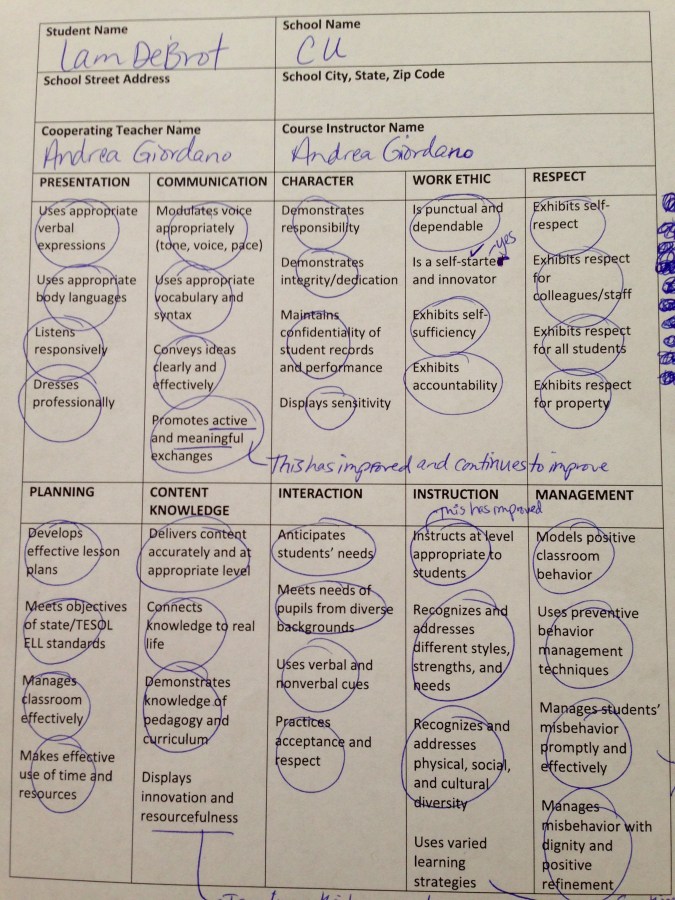 Student Name
School Name
Iam DeBrot
CU
School Street Address
School City, State, Zip Code
Cooperating Teacher Name
Course Instructor Name
Andrea Giordano
Andrea Giordano
PRESENTATION
Uses appropriate
verbal
expressions
Uses appropriate
body languages
Listens
responsively
Dresses
professionally
COMMUNICATION
Modulates voice
appropriately
(tone, voice, pace)
Uses appropriate
vocabulary and
syntax
Conveys ideas
clearly and
effectively
Promotes active
and meaningful
exchanges
This has improved and continues to improve
CHARACTER
Demonstrates
responsibility
Demonstrates
integrity/dedication
Maintains
confidentiality of
student records
and performance
Displays sensitivity
WORK ETHIC
Is punctual and
dependable
yes
Is a self-starter
and innovator
Exhibits self-
sufficiency
Exhibits
accountability
RESPECT
Exhibits self-
respect
Exhibits respect
for
colleagues/staff
Exhibits respect
for all students
Exhibits respect
for property
PLANNING
Develops
effective lesson
plans
Meets objectives
of state/TESOL
ELL standards
Manages
classroom
effectively
Makes effective
use of time and
resources
CONTENT
KNOWLEDGE
Delivers content
accurately and at
appropriate level
Connects
knowledge to real
life
Demonstrates
knowledge of
pedagogy and
curriculum
Displays
innovation and
resourcefulness
INTERACTION
Anticipates
students' needs
Meets needs of
pupils from diverse
backgrounds
Uses verbal and
nonverbal cues
Practices
acceptance and
respect
INSTRUCTION
This has improved
Instructs at level
appropriate to
students
Recognizes and
addresses
different styles,
strengths, and
needs
Recognizes and
addresses
physical, social,
and cultural
diversity
Uses varied
learning
strategies
MANAGEMENT
Models positive
classroom
behavior
Uses preventive
behavior
management
techniques
Manages students'
misbehavior
promptly and
effectively
Manages
misbehavior with
dignity and
positive
refinement